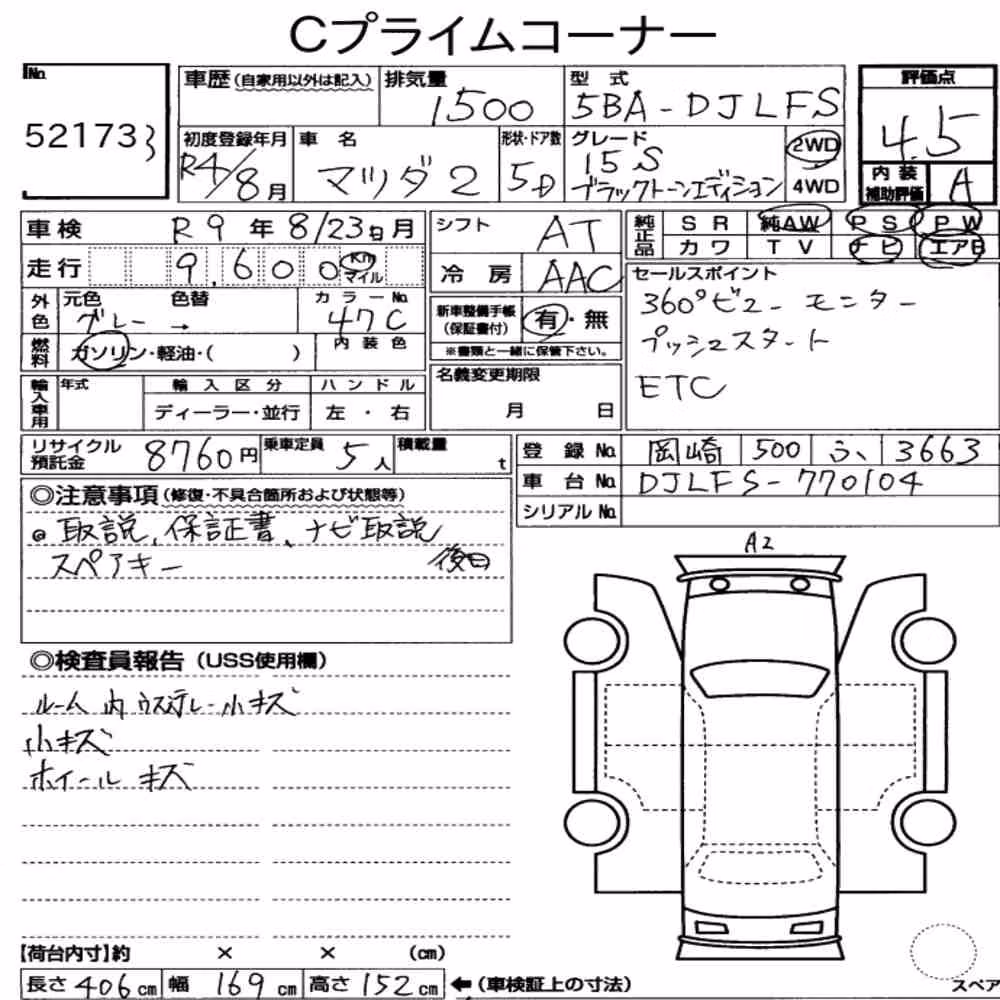 Cプライムコーナー
No.
52173
車歴 (自家用以外は記入)
排気量
1500
型式
5BA-DJLFS
評価点
4.5
初度登録年月
R4/8月
車名
マツダ2
形状・ドア数
5D
グレード
15S
ブラックトーンエディション
2WD
4WD
内装
補助評価
A
車検
R9年8/23日月
シフト
AT
純正品
SR 純AW PS PW
カワ TV ナビ エアB
走行
9,600 Km
マイル
冷房
AAC
セールスポイント
360°ビューモニター
プッシュスタート
ETC
外色
元色 色替 カラーNo.
グレー → 47C
新車整備手帳
(保証書付)
有・無
※書類と一緒に保管下さい。
燃料
ガソリン・軽油・( )
内装色
名義変更期限
月 日
輸入車用
年式
輸入区分
ハンドル
ディーラー・並行
左・右
リサイクル
預託金
8760円
乗車定員
5人
積載量
t
登録No.
岡崎 500 ふ 3663
車台No.
DJLFS-770104
シリアルNo.
◎注意事項 (修復・不具合箇所および状態等)
取説、保証書、ナビ取説
スペアキー 後日
A2
◎検査員報告 (USS使用欄)
ルーム内ウスヨゴレ小キズ
小キズ
ホイールキズ
【荷台内寸】約 × × (cm)
長さ 406cm 幅 169cm 高さ 152cm ←(車検証上の寸法)
スペア